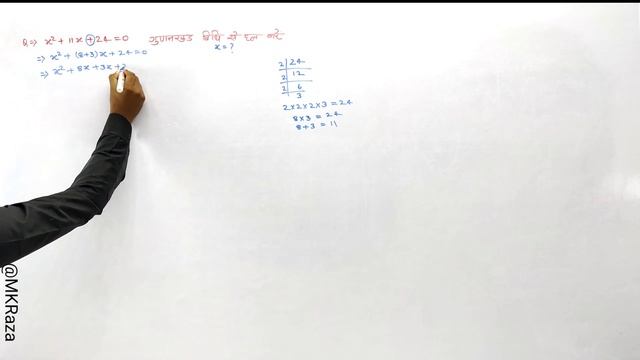 Q. ⇒ x² + 11x + 24 = 0 गुणनखंड विधि से हल करें
x = ?
⇒ x² + (8+3)x + 24 = 0
⇒ x² + 8x + 3x + 2
2 | 24
2 | 12
2 | 6
3
2×2×2×3 = 24
8×3 = 24
8+3 = 11
@MKRaza